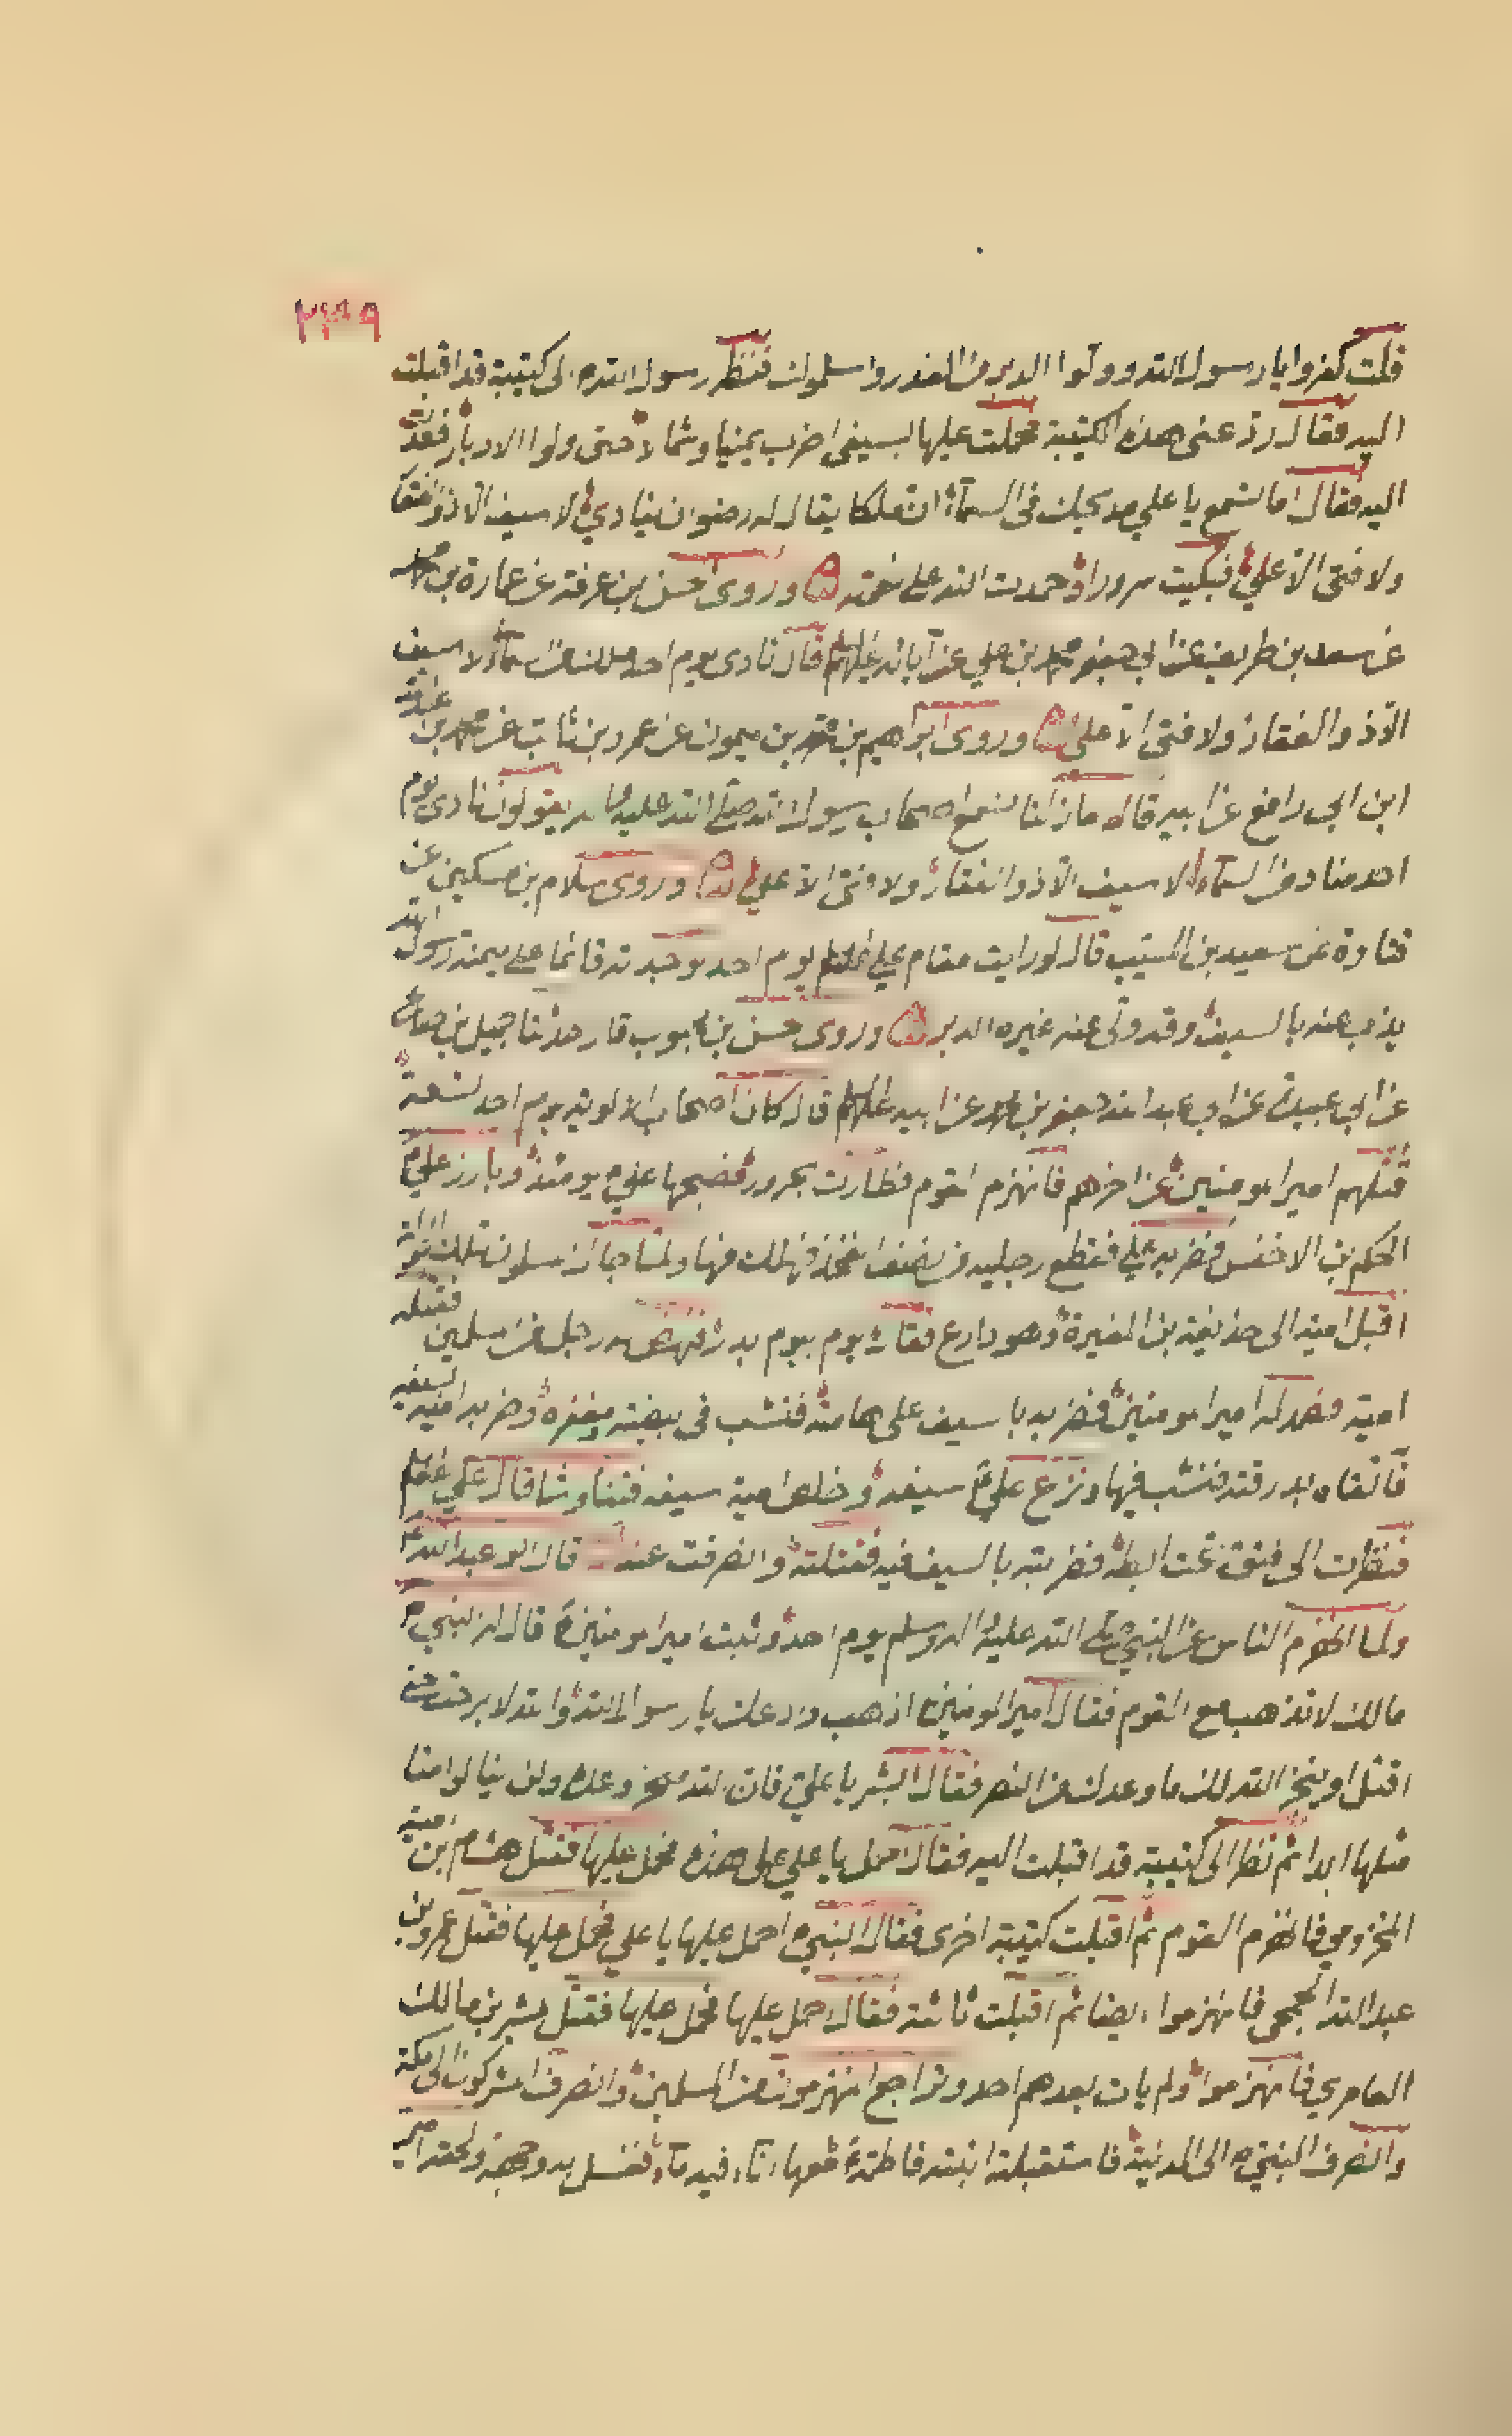 ٢٣٩
قلت كفروا يا رسول الله وولوا الدبر من العدو واسلموك فنظر رسول الله م الى كتيبة قد اقبلت
اليه فقال رد عنى هذه الكتيبة فحملت عليها بسيفى اضرب يمينا وشمالا حتى ولوا الادبار فعدت
اليه فقال اما تسمع يا علي مديحك فى السماء ان ملكا يقال له رضوان ينادي لا سيف الا ذو الفقار
ولا فتى الا علي فبكيت سرورا وحمدت الله على نعمته وروى حسن بن عرفة عن عمارة بن محمد
عن سعد بن طريف عن ابي جعفر محمد بن علي عن آبائه عليهم قال نادى يوم احد ملك من السماء لا سيف
الا ذو الفقار ولا فتى الا علي وروى ابراهيم بن محمد بن ميمون عن عمرو بن ثابت عن محمد بن عبيد الله
ابن ابي رافع عن ابيه قال ما زلنا نسمع اصحاب رسول الله صلى الله عليه واله يقولون نادى يوم
احد مناد من السماء لا سيف الا ذو الفقار ولا فتى الا علي وروى سلام بن مسكين عن
قتادة عن سعيد بن المسيب قال لو رايت مقام علي يوم احد لوجدته قائما على ميمنة رسول الله
يذب عنه بالسيف وقد ولى عنه غيره الدبر وروى حسن بن محبوب قال حدثنا جميل بن صالح
عن ابي عبيدة عن ابي عبد الله جعفر بن محمد عن ابيه عليهم قال كان اصحاب الالوية يوم احد تسعة
قتلهم امير المومنين عن اخرهم فانهزم القوم فطارت مخزوم فضحها علي م يومئذ وبارز علي
الحكم بن الاخنس فضربه علي فقطع رجليه من نصف الفخذ فهلك منها ولما جال المسلمون تلك الجولة
اقبل امية الى حذيفة بن المغيرة وهو دارع فقال يوم بيوم بدر فنهض له رجل من المسلمين فقتله
امية فصمد له امير المومنين فضربه بالسيف على هامته فنشب فى بيضته مغفره وضربه امية بسيفه
فاتقاه بدرقته فنشب فيها ونزع علي سيفه وخلص امية سيفه فتناوشا قال علي
فنظرت الى فتق تحت ابطه فضربته بالسيف فيه فقتلته وانصرفت عنه قال ابو عبد الله
ولما انهزم الناس عن النبي صلى الله عليه واله وسلم يوم احد وثبت امير المومنين قال له النبي م
مالك لا تذهب مع القوم فقال امير المومنين اذهب وادعك يا رسول الله والله لا برحت حتى
اقتل او ينجز الله لك ما وعدك من النصر فقال ابشر يا علي فان الله منجز وعده ولن ينالوا منا
مثلها ابدا ثم نظر الى كتيبة قد اقبلت اليه فقال احمل يا علي على هذه فحمل عليها فقتل هشام بن امية
المخزومي فانهزم القوم ثم اقبلت كتيبة اخرى فقال النبي احمل عليها يا علي فحمل عليها فقتل عمرو بن
عبد الله الجمحي فانهزموا ايضا ثم اقبلت ثالثة فقال احمل عليها فحمل عليها فقتل بشر بن مالك
العامري فانهزموا ولم يات بعدهم احد وتراجع المنهزمون من المسلمين وانصرف المشركون الى مكة
وانصرف النبي م الى المدينة فاستقبلته ابنته فاطمة معها اناء فيه ماء فغسل به وجهه ولحقه امير